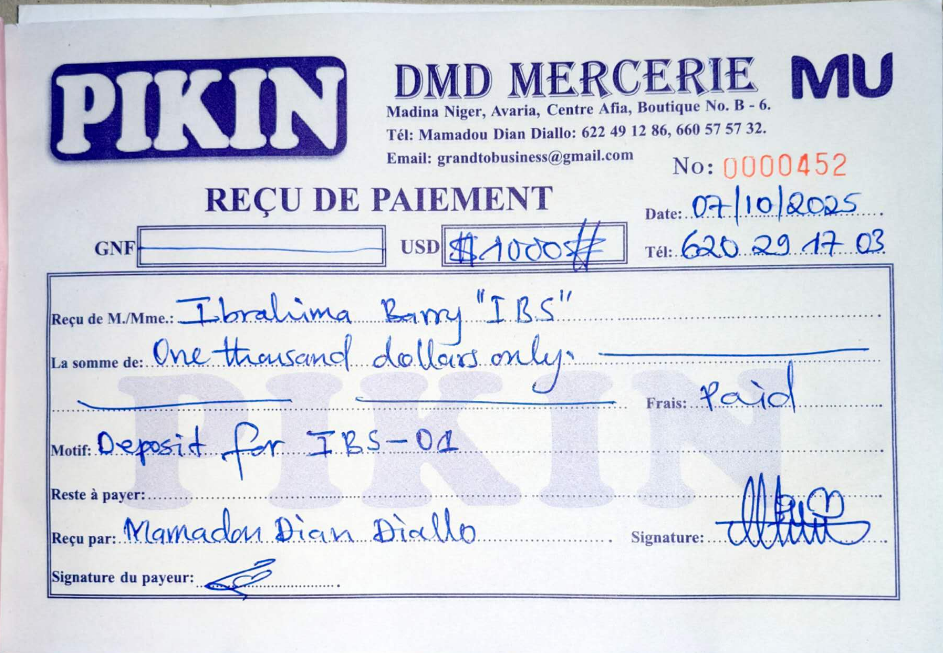 PIKIN
DMD MERCERIE MU
Madina Niger, Avaria, Centre Afia, Boutique No. B - 6.
Tél: Mamadou Dian Diallo: 622 49 12 86, 660 57 57 32.
Email: grandtobusiness@gmail.com
No: 0000452
REÇU DE PAIEMENT
Date: 07/10/2025
GNF USD #1000$#
Tél: 620 29 17 03
Reçu de M./Mme.: Ibrahima Barry "IBS"
La somme de: One thousand dollars only.
Frais: Paid
Motif: Deposit for IBS-01
Reste à payer:
Reçu par: Mamadou Dian Diallo Signature:
Signature du payeur:
PIKIN